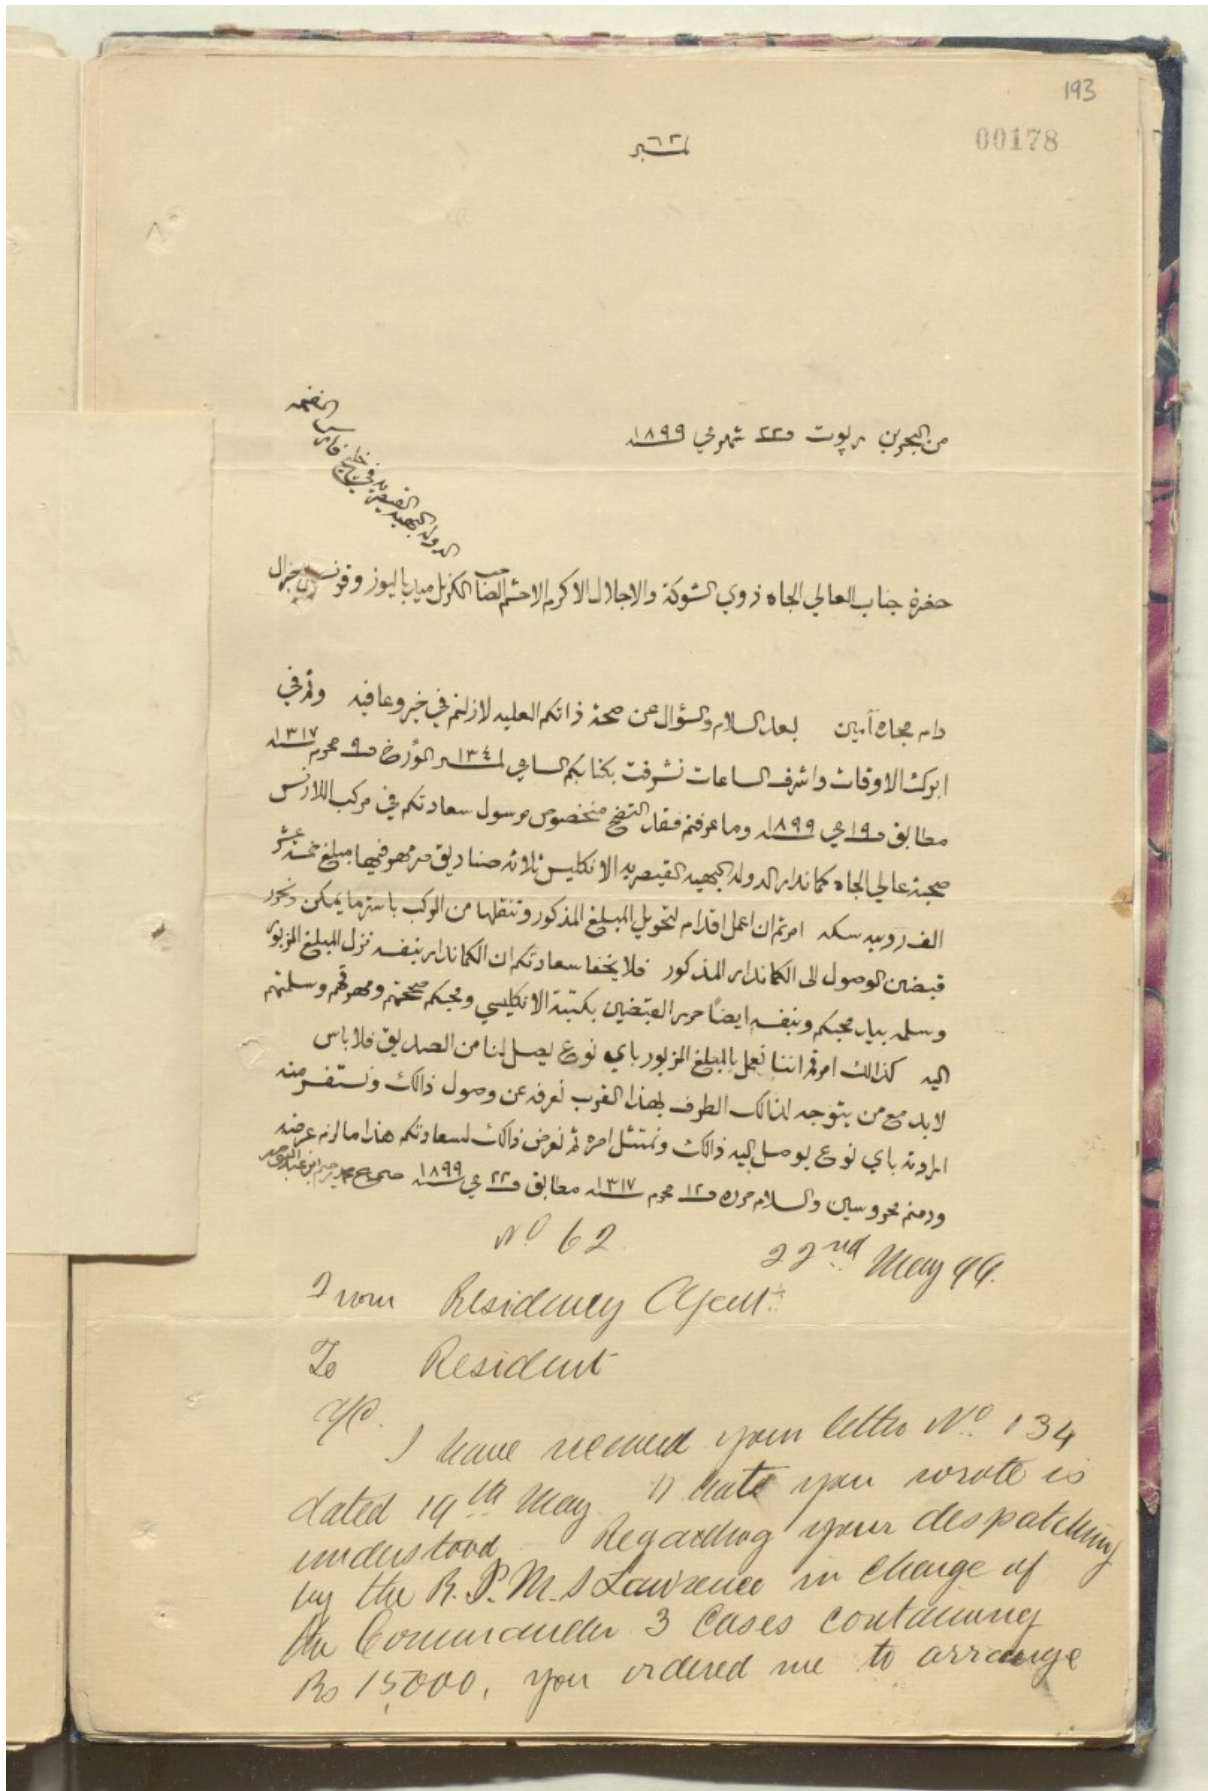 193
00178
نمبر ٦٢
من البحرين رپوت في ٢٢ شهر مي ١٨٩٩ سنه
حضرة جناب العالي الجاه ذوي الشوكة والاجلال الاكرم الاحشم الصاحب الكرنل ميد باليوز وقونسل جنرال
الدوله البهيه القيصريه في خليج فارس المفخم
دام مجاه آمين بعد السلام والسؤال عن صحة ذاتكم العليه لازلتم في خير وعافيه وثم في
ابرك الاوقات واشرف الساعات تشرفت بكتابكم السامي نمبر ١٣٤ المؤرخ في ٩ محرم سنه ١٣١٧
مطابق في ١٩ مي سنه ١٨٩٩ وما عرفتم فقد اتضح منخصوص مرسول سعادتكم في مركب اللارنس
صحبة عالي الجاه كماندار الدوله البهيه القيصريه الانكليس ثلاثه صناديق ممهور فيها مبلغ خمسة عشر
الف روبيه سكه امرتم ان اعمل اقدام لتحويل المبلغ المذكور وتنقلها من المركب باستر ما يمكن ونحرر
قبضين الوصول الى الكماندار المذكور فلا يخفا سعادتكم ان الكماندار بنفسه نزل المبلغ المزبور
وسلمه بيد محبكم وبنفسه ايضًا حرر القبضين بكتبة الانكليسي ومحبكم صححتهم ومهرتهم وسلمتهم
اليه كذالك امرتم اننا نعمل بالمبلغ المزبور باي نوع يصل لنا من الصديق فلا باس
لابد مع من يتوجه لذالك الطرف بهذا القرب نعرفه عن وصول ذالك ونستفسر منه
ارادته باي نوع يوصل اليه ذالك ونمتثل امره ثم نعرض ذالك لسعادتكم هذا ما لزم عرضه
ودمتم محروسين والسلام حرره في ١٢ محرم سنه ١٣١٧ مطابق في ٢٢ مي سنه ١٨٩٩ صحيح محمد رحيم ابن عبد الرحيم
No 62
22nd May 99.
From Residency Agent
To Resident
A/C.
I have received your letter No. 134
dated 19th May. What you wrote is
understood. Regarding your despatching
by the R.I.M.S Lawrence in charge of
the Commander 3 Cases containing
Rs 15,000, you ordered me to arrange